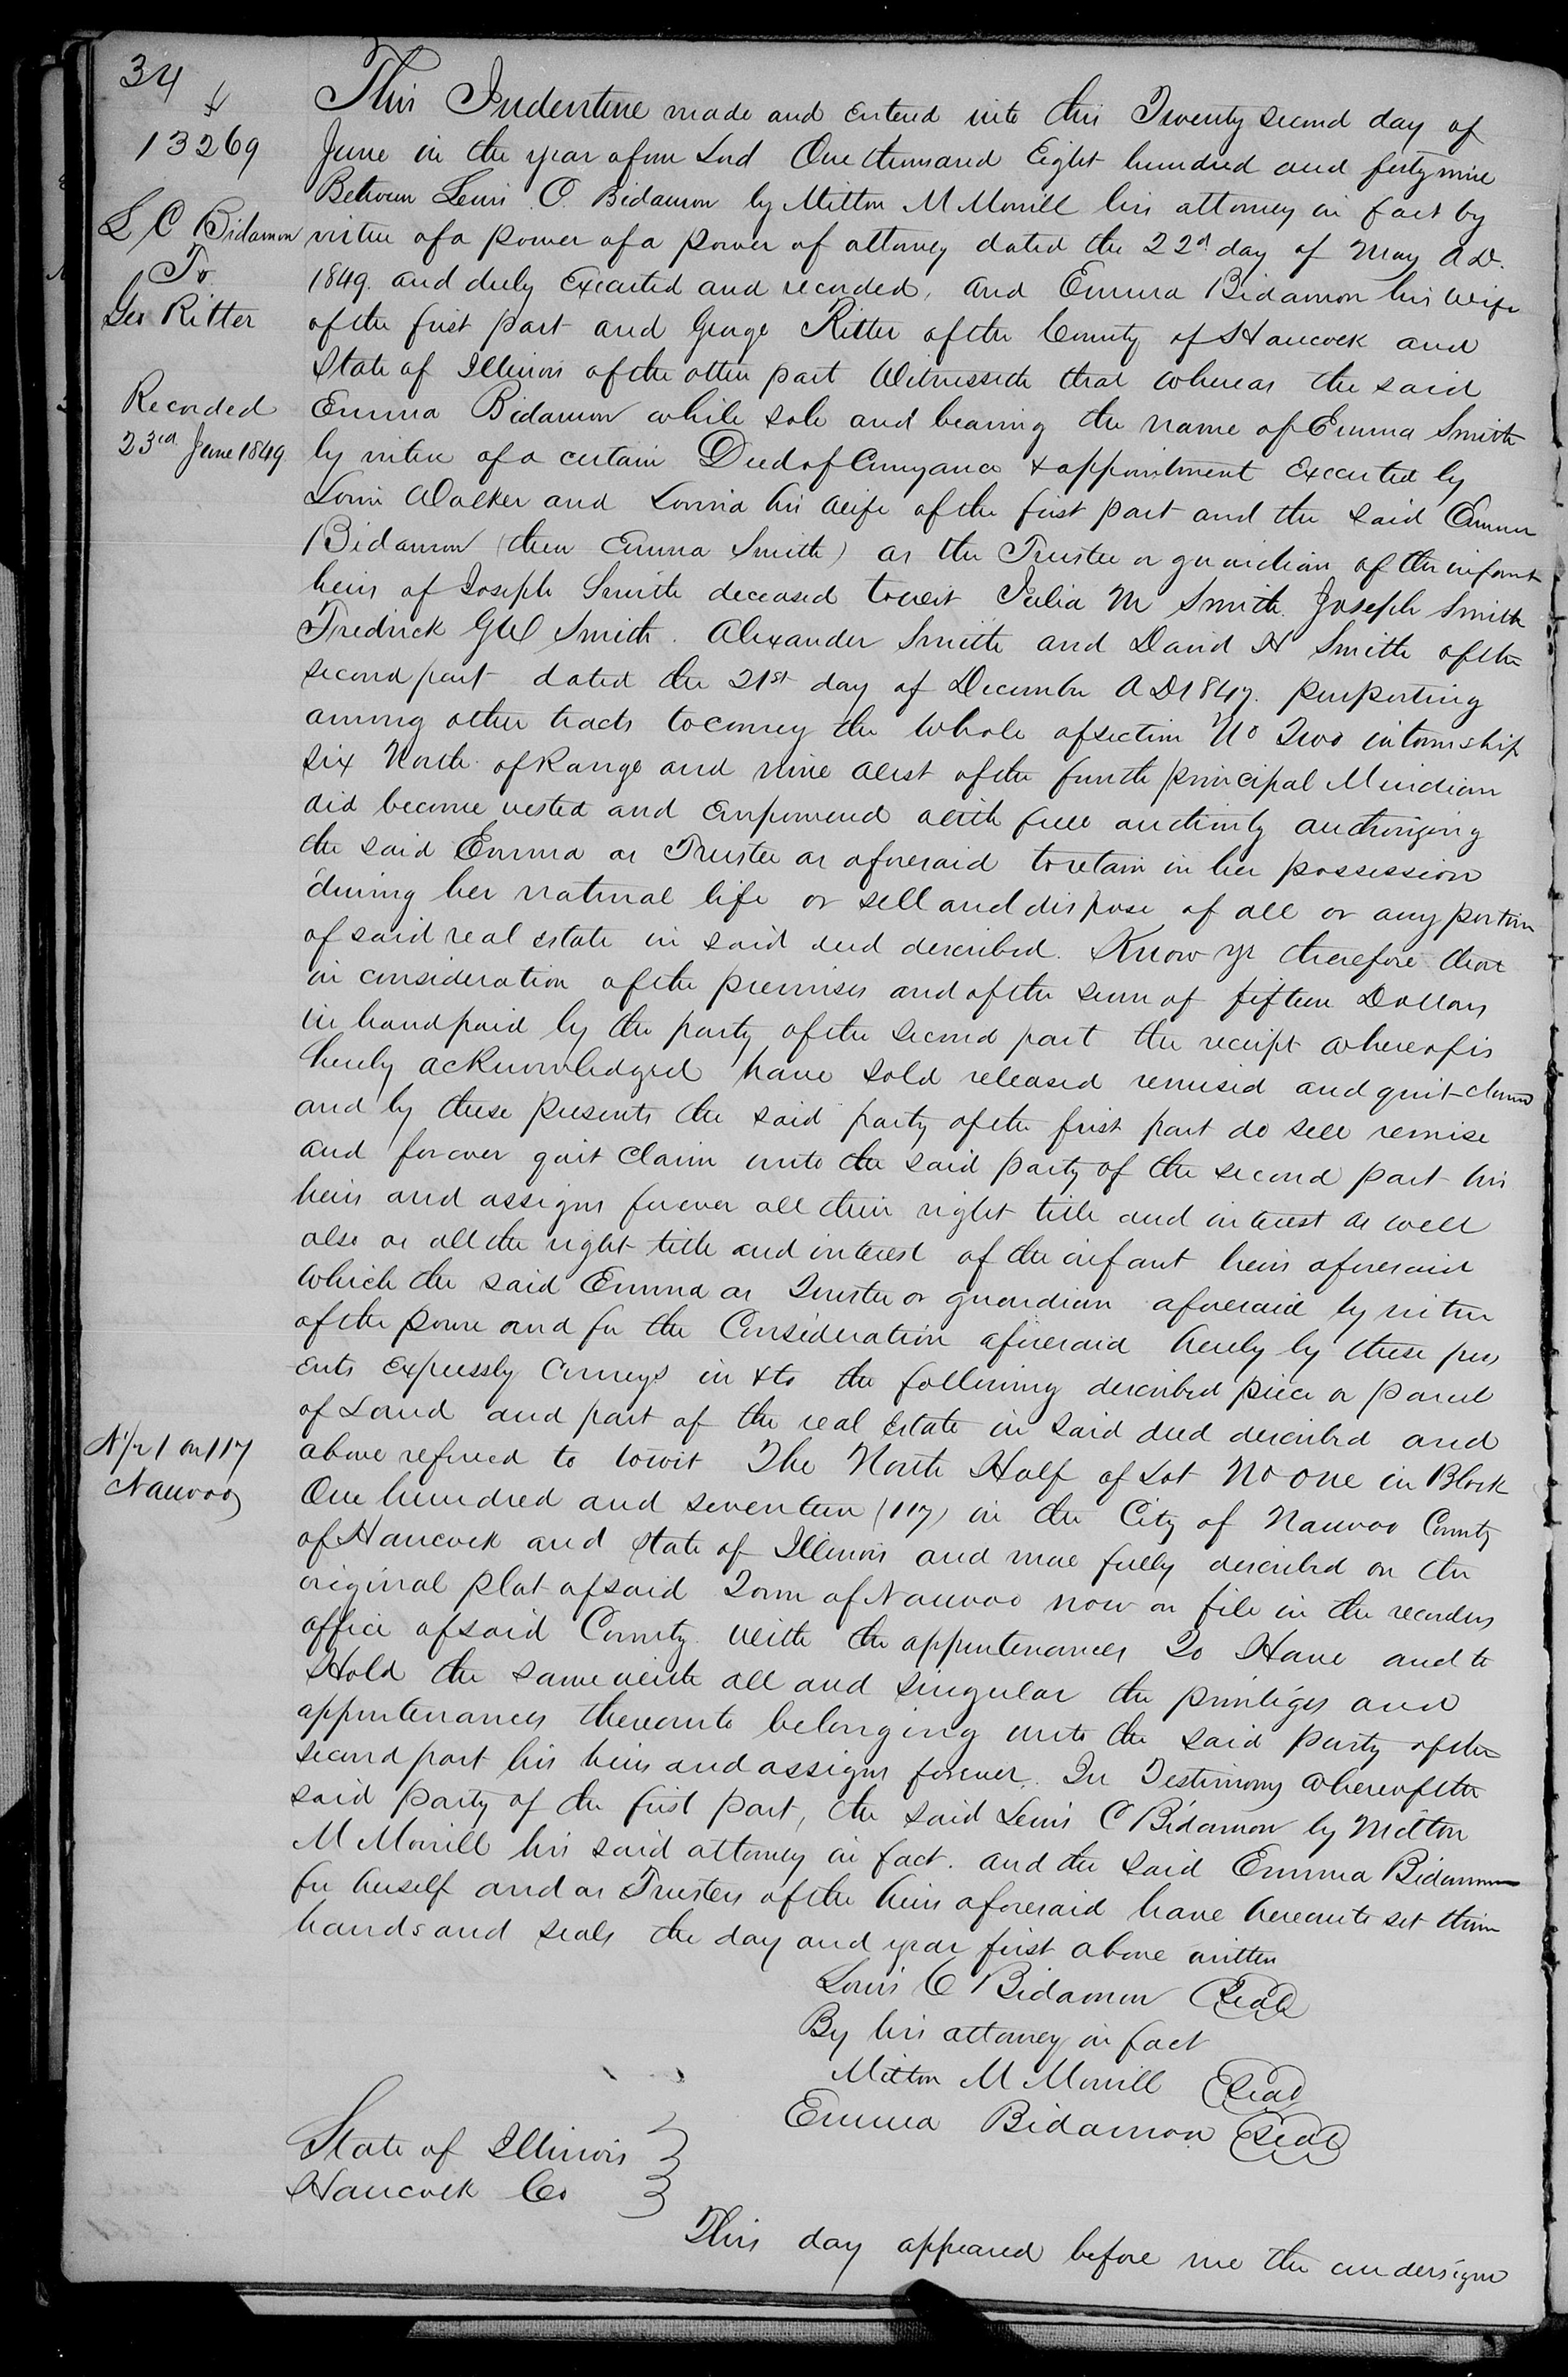 34
13269
L C Bidamon
To
Geo Ritter
Recorded
23rd June 1849.
This Indenture made and entered into this Twenty second day of
June in the year of our Lord One thousand Eight hundred and forty nine
Between Lewis C. Bidamon by Milton M Morrill his attorney in fact by
virtue of a power of a power of attorney dated the 22d day of May A.D.
1849. and duly Executed and recorded, and Emma Bidamon his wife
of the first part and George Ritter of the County of Hancock and
State of Illinois of the other part Witnesseth that whereas the said
Emma Bidamon while sole and bearing the name of Emma Smith
by virtue of a certain Deed of Conveyance & appointment Executed by
Lorin Walker and Lovina his wife of the first part and the said Emma
Bidamon (then Emma Smith) as the Trustee or guardian of the infant
heirs of Joseph Smith deceased towit Julia M Smith. Joseph Smith
Fredrick G W Smith. Alexander Smith and David H Smith of the
second part dated the 21st day of December A D 1847. purporting
among other tracts to convey the whole of section No Two in township
six North of Range and nine West of the fourth principal Meridian
did become vested and Empowered with full authority authorizing
the said Emma as Trustee as aforesaid to retain in her possession
during her natural life or sell and dispose of all or any portion
of said real estate in said deed described. Know ye therefore that
in consideration of the premises and of the sum of fifteen Dollars
in hand paid by the party of the second part the receipt whereof is
hereby acknowledged have sold released remised and quit-claimed
and by these presents the said party of the first part do sell remise
and forever quit claim unto the said party of the second part his
heirs and assigns forever all their right title and interest as well
also as all the right title and interest of the infant heirs aforesaid
which the said Emma as Trustee or guardian aforesaid by virtue
of the power and for the Consideration aforesaid hereby by these pres
ents expressly conveys in & to the following described piece or parcel
of Land and part of the real Estate in said deed described and
above referred to towit The North Half of Lot No one in Block
One hundred and seventeen (117) in the City of Nauvoo County
of Hancock and State of Illinois and more fully described on the
original plat of said Town of Nauvoo now on file in the recorders
office of said County. with the appurtenances To Have and to
Hold the same with all and singular the privileges and
appurtenances thereunto belonging unto the said party of the
second part his heirs and assigns forever. In Testimony whereof the
said party of the first part, the said Lewis C Bidamon by Milton
M Morrill his said attorney in fact. and the said Emma Bidamon
for herself and as Trustee of the heirs aforesaid have hereunto set their
hands and seals the day and year first above written
N 1/2 1 on 117
Nauvoo
Louis C Bidamon Seal
By his attorney in fact
Milton M Morrill Seal
Emma Bidamon Seal
State of Illinois
Hancock Co
This day appeared before me the undersigned